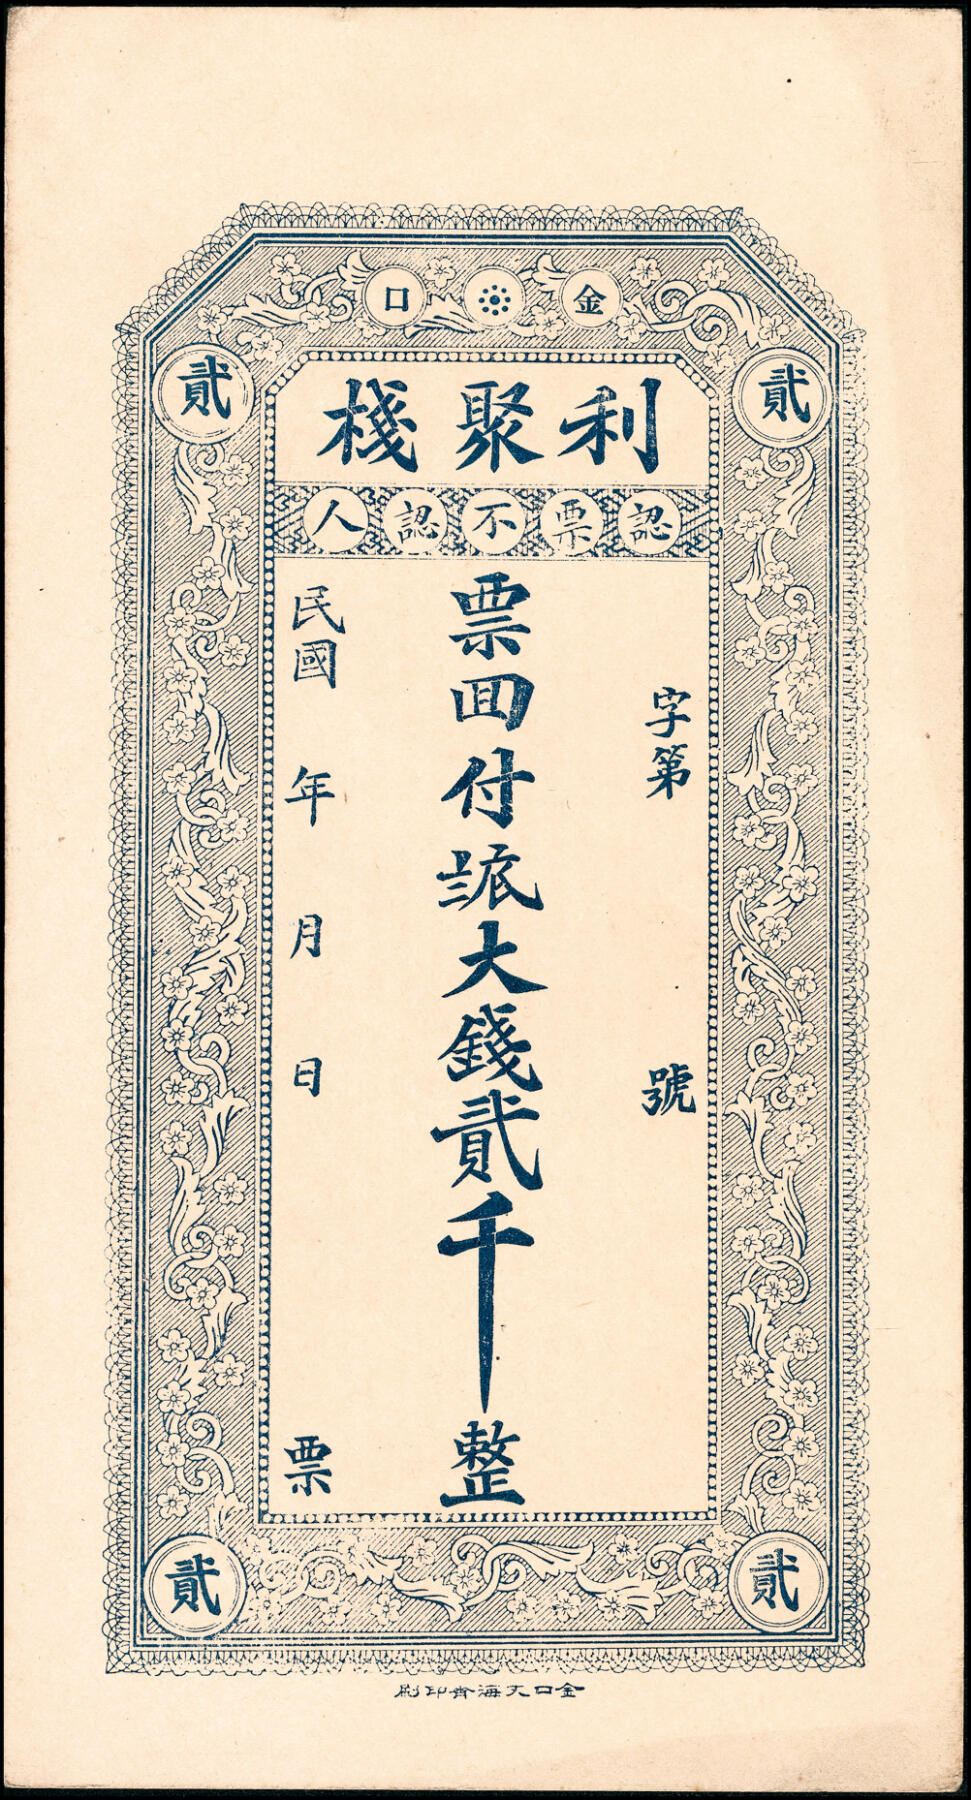 金口
貳 貳
利聚棧
認票不認人
字第 號
票囬付大錢貳千整
民國 年 月 日 票
貳 貳
金口海印刷